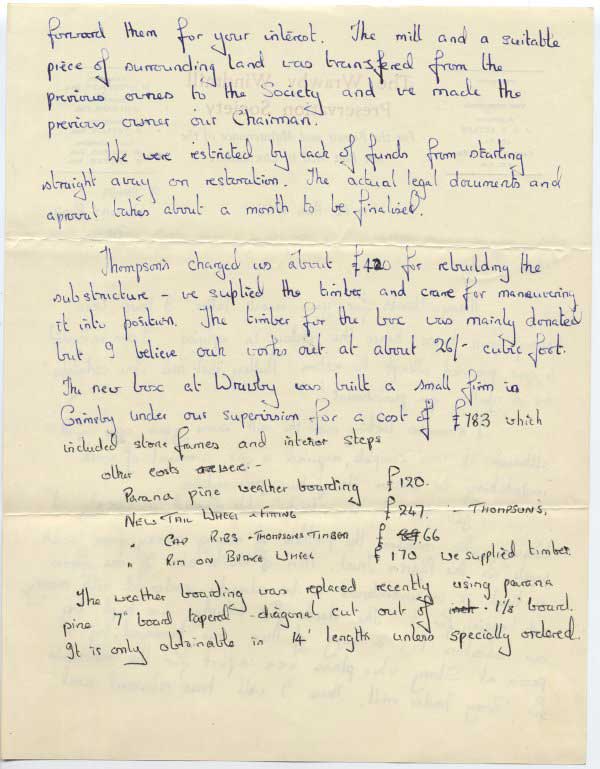 forward them for your interest. The mill and a suitable
piece of surrounding land was transfered from the
previous ownes to the Society and we made the
previous owner our Chairman.
We were restricted by lack of funds from starting
straight away on restoration. The actual legal documents and
aproval takes about a month to be finalised.
Thompson's charged us about £420 for rebuilding the
substructure - we suplied the timber and crane for maneuvering
it into position. The timber for the box was mainly donated
but I believe oak works out at about 26/- cubic foot.
The new box at Wrawby was built a small firm in
Grimsby under our supervision for a cost of £783 which
included stone frames and interior steps
other costs were:-
Parana pine weather boarding £120.
NEW TAIL WHEEL & FITTING £247. - THOMPSONS.
" CAP RIBS - THOMPSONS TIMBER £ 66
" RIM ON BRAKE WHEEL £ 170 we supplied timber.
The weather boarding was replaced recently using parana
pine 7" board tapered - diagonal cut out of 1 1/8" board.
It is only obtainable in 14' lengths unless specially ordered.